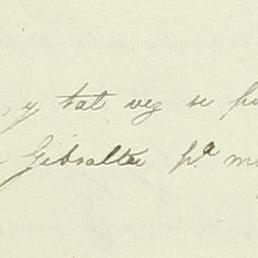 y tal vez se
Gibraltar pª